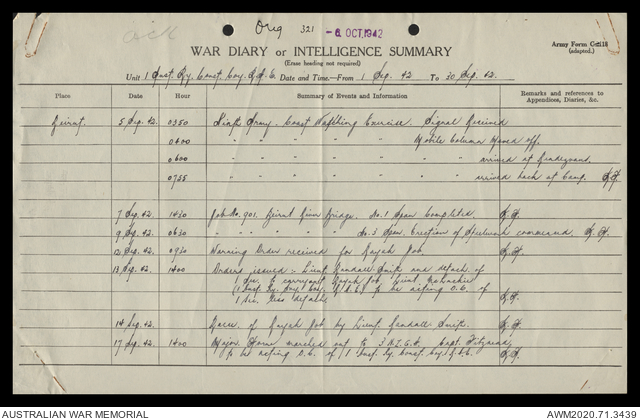 ack
Orig 321 -6 OCT 1942
WAR DIARY or INTELLIGENCE SUMMARY
(Erase heading not required)
Army Form C2118
(adapted.)
Unit 1 Aust. Ry. Const. Coy. R.A.E. Date and Time—From 1 Sep. 42 To 30 Sep. 42.
Place Date Hour Summary of Events and Information Remarks and references to
Appendices, Diaries, &c.
Beirut. 5 Sep. 42. 0350 Ninth Army. Coast Watching Exercise. Signal Received
0400 " " " " " Mobile Column moved off.
0600 " " " " " " " arrived at Rendezvous.
0755 " " " " " " " arrived back at Camp.
7 Sep. 42. 1430 Job No. 901. Beirut River Bridge. No. 1 Span Completed.
9 Sep. 42. 0630 " " " " " No. 3 Span. Erection of Steelwork commenced.
12 Sep. 42. 0930 Warning Order received for Rayak Job.
13 Sep. 42. 1400 Orders issued :- Lieut. Randall-Smith and detach. of
1 Sec. to carry out Rayak Job. Lieut.
to be acting O.C. of
1 Sec.
14 Sep. 42. of Rayak Job by Lieut. Randall-Smith.
17 Sep. 42. 1400 Major marched out to Capt. Fitzgerald
to be acting O.C. of 1 Aust. Ry. Const. Coy. R.A.E.
1.
AUSTRALIAN WAR MEMORIAL AWM2020.71.3439